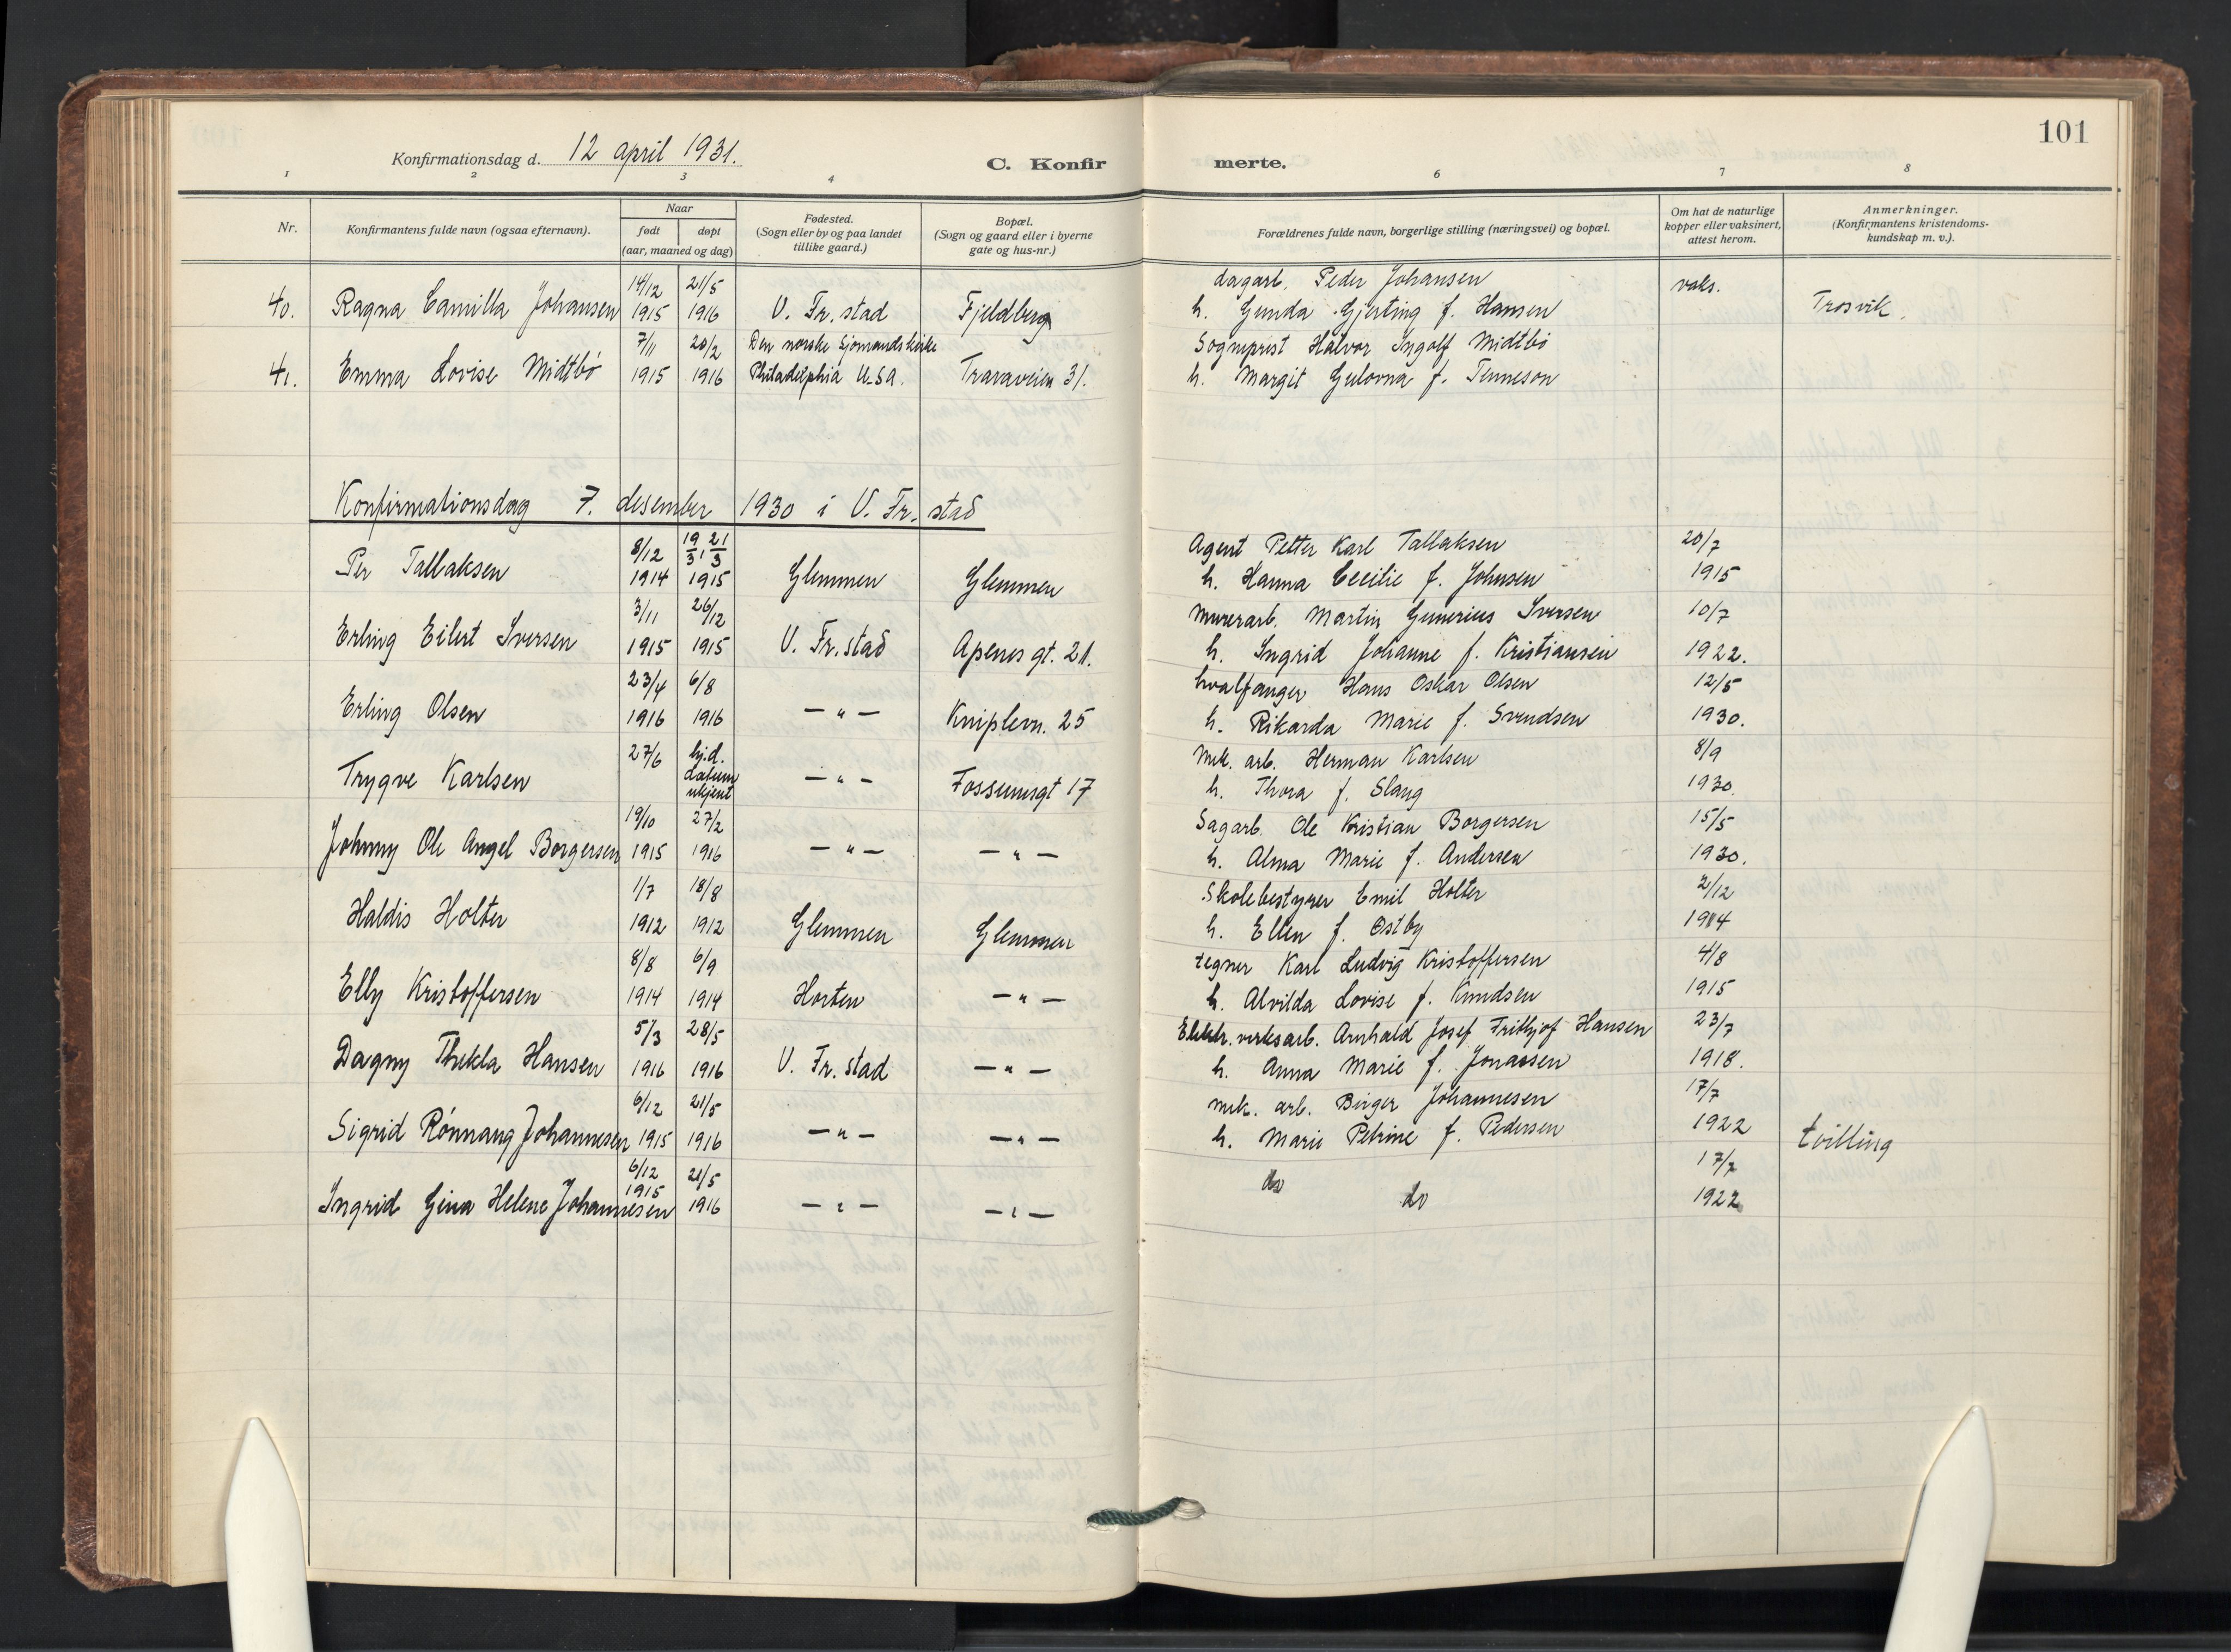 101
Konfirmationsdag d. 12 april 1931.
C. Konfirmerte.
1 2 3 4 6 7 8
Nr.
Konfirmantens fulde navn (ogsaa efternavn).
Naar
født døpt
(aar, maaned og dag)
Fødested.
(Sogn eller by og paa landet
tillike gaard.)
Bopæl.
(Sogn og gaard eller i byerne
gate og hus-nr.)
Forældrenes fulde navn, borgerlige stilling (næringsvei) og bopæl.
Om hat de naturlige
kopper eller vaksinert,
attest herom.
Anmerkninger.
(Konfirmantens kristendoms-
kundskap m. v.).
14/12 21/5 dagarb. Peder Johansen vaks.
40. Ragna Camilla Johansen 1915 1916 V. Fr. stad Fjeldberg h. Gunda Gjerting f. Hansen Trosvik.
7/11 20/2 Den norske Sjömandskirke Sogneprest Halvor Ingolf Midtbö
41. Emma Lovise Midtbö 1915 1916 Philadelphia U.S.A. Traraveien 31. h. Margit Gulovna f. Tenneson
Konfirmationsdag 7. desember 1930 i V. Fr. stad
8/12 19/3, 21/3 Agent Petter Karl Tallaksen 20/7
Per Tallaksen 1914 1915 Glemmen Glemmen h. Hanna Cecilie f. Johnsen 1915
3/11 26/12 murerarb. Martin Gunerius Iversen 10/7
Erling Eilert Iversen 1915 1915 V. Fr. stad Apenesgt. 21. h. Ingrid Johanne f. Kristiansen 1922.
23/4 6/8 hvalfanger Hans Oskar Olsen 12/5
Erling Olsen 1916 1916 — " — Kniplevn. 25 h. Rikarda Marie f. Svendsen 1930.
27/6 hj.d. mek. arb. Herman Karlsen 8/9
Trygve Karlsen datum ukjent — " — Fossumsgt 17 h. Thora f. Slang 1930.
19/10 27/2 Sagarb. Ole Kristian Borgersen 15/5
Johnny Ole Angel Borgersen 1915 1916 — " — — " — h. Alma Marie f. Andersen 1930.
1/7 18/8 Skolebestyrer Emil Holter 2/12
Haldis Holter 1912 1912 Glemmen Glemmen h. Ellen f. Østby 1914
8/8 6/9 tegner Karl Ludvig Kristoffersen 4/8
Elly Kristoffersen 1914 1914 Horten — " — h. Alvilda Lovise f. Knudsen 1915
5/3 28/5 Elektr. verksarb. Arnhald Josef Frithjof Hansen 23/7
Dagny Thekla Hansen 1916 1916 V. Fr. stad — " — h. Anna Marie f. Jonassen 1918.
6/12 21/5 mek. arb. Birger Johannesen 17/7
Sigrid Rönnang Johannesen 1915 1916 — " — — " — h. Marie Petrine f. Pedersen 1922 tvilling
6/12 21/5 do do 17/7
Ingrid Gina Helene Johannesen 1915 1916 — " — — " — 1922